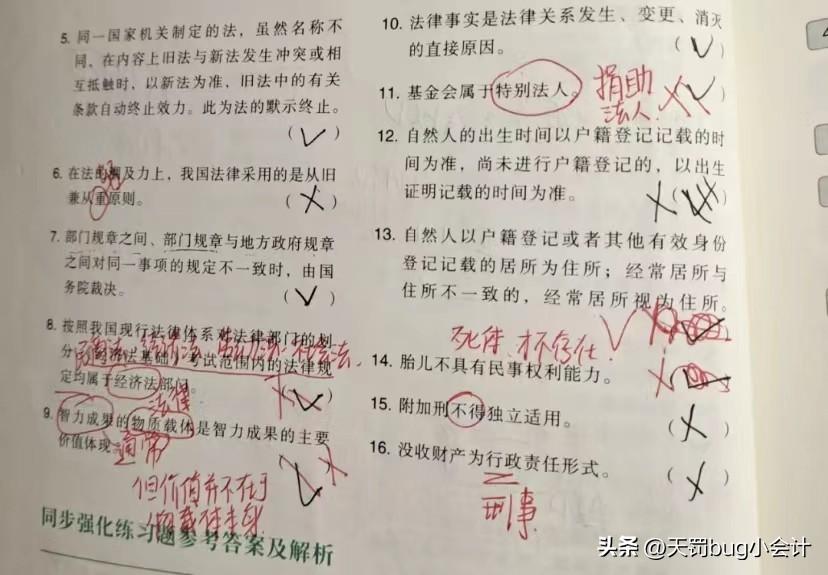 5. 同一国家机关制定的法，虽然名称不
同、在内容上旧法与新法发生冲突或相
互抵触时，以新法为准，旧法中的有关
条款自动终止效力。此为法的默示终止。
(✓)
6. 在法的溯及力上，我国法律采用的是从旧
兼从重原则。 (×)
轻
7. 部门规章之间、部门规章与地方政府规章
之间对同一事项的规定不一致时，由国
务院裁决。 (✓)
8. 按照我国现行法律体系对法律部门的划
分，经济法基础》考试范围内的法律规
定均属于经济法部门。 ×(✓)
法律
9. 智力成果的物质载体是智力成果的主要
价值体现。
通常
但价值并不在于
载体本身
✓ ×
同步强化练习题参考答案及解析
10. 法律事实是法律关系发生、变更、消灭
的直接原因。 (✓)
11. 基金会属于特别法人。 ×(✓)
捐助
法人.
12. 自然人的出生时间以户籍登记记载的时
间为准，尚未进行户籍登记的，以出生
证明记载的时间为准。 ×
13. 自然人以户籍登记或者其他有效身份
登记记载的居所为住所；经常居所与
住所不一致的，经常居所视为住所。
✓
死体、才不存在
14. 胎儿不具有民事权利能力。 ×
15. 附加刑不得独立适用。 (×)
16. 没收财产为行政责任形式。 (×)
刑事
头条 @天罚bug小会计